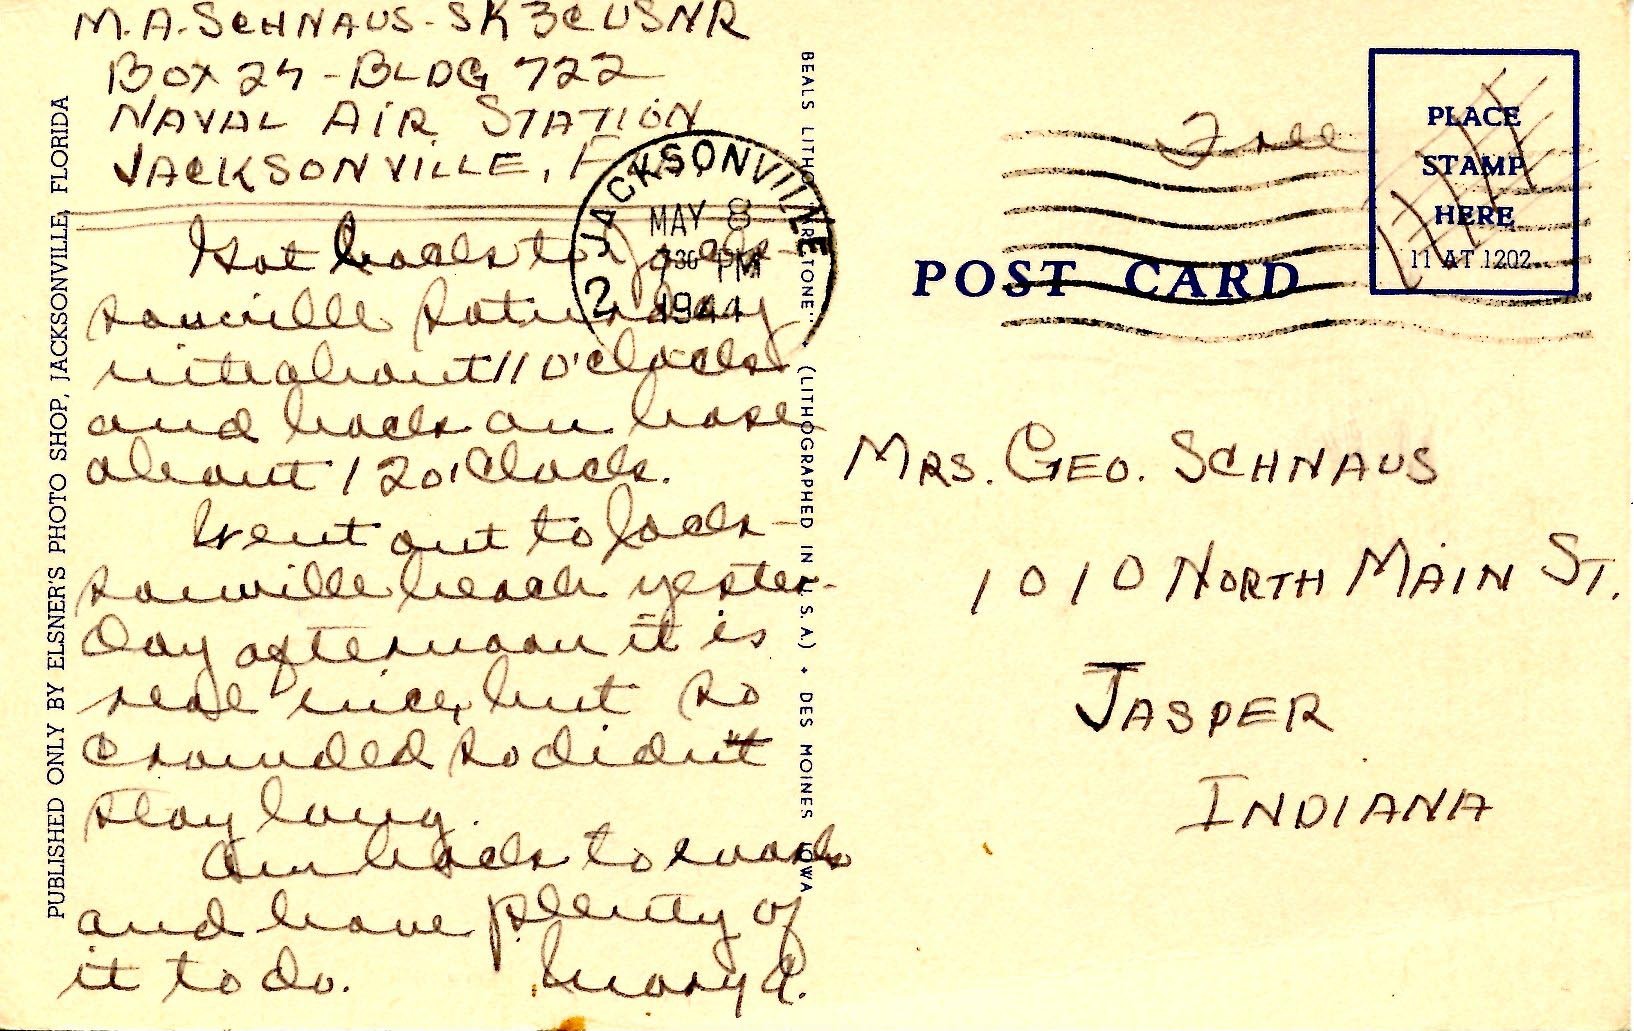 M.A. SCHNAUS - SK3C USNR
BOX 24 - BLDG 722
NAVAL AIR STATION
JACKSONVILLE, F
Got back to Jack-
sonville Saturday
nite about 11 o'clock
and back on base
about 12 o'clock.
Went out to Jack-
sonville beach yester-
day afternoon it is
real nice, but so
crowded so didn't
stay long.
Am back to work
and have plenty of
it to do. Mary A.
PUBLISHED ONLY BY ELSNER'S PHOTO SHOP, JACKSONVILLE, FLORIDA
JACKSONVILLE 2
MAY 8
730 PM
1944
BEALS LITHO (LITHOGRAPHED IN U.S.A.) • DES MOINES IOWA
Free
PLACE
STAMP
HERE
11 AT 1202
POST CARD
MRS. GEO. SCHNAUS
1010 NORTH MAIN ST.
JASPER
INDIANA